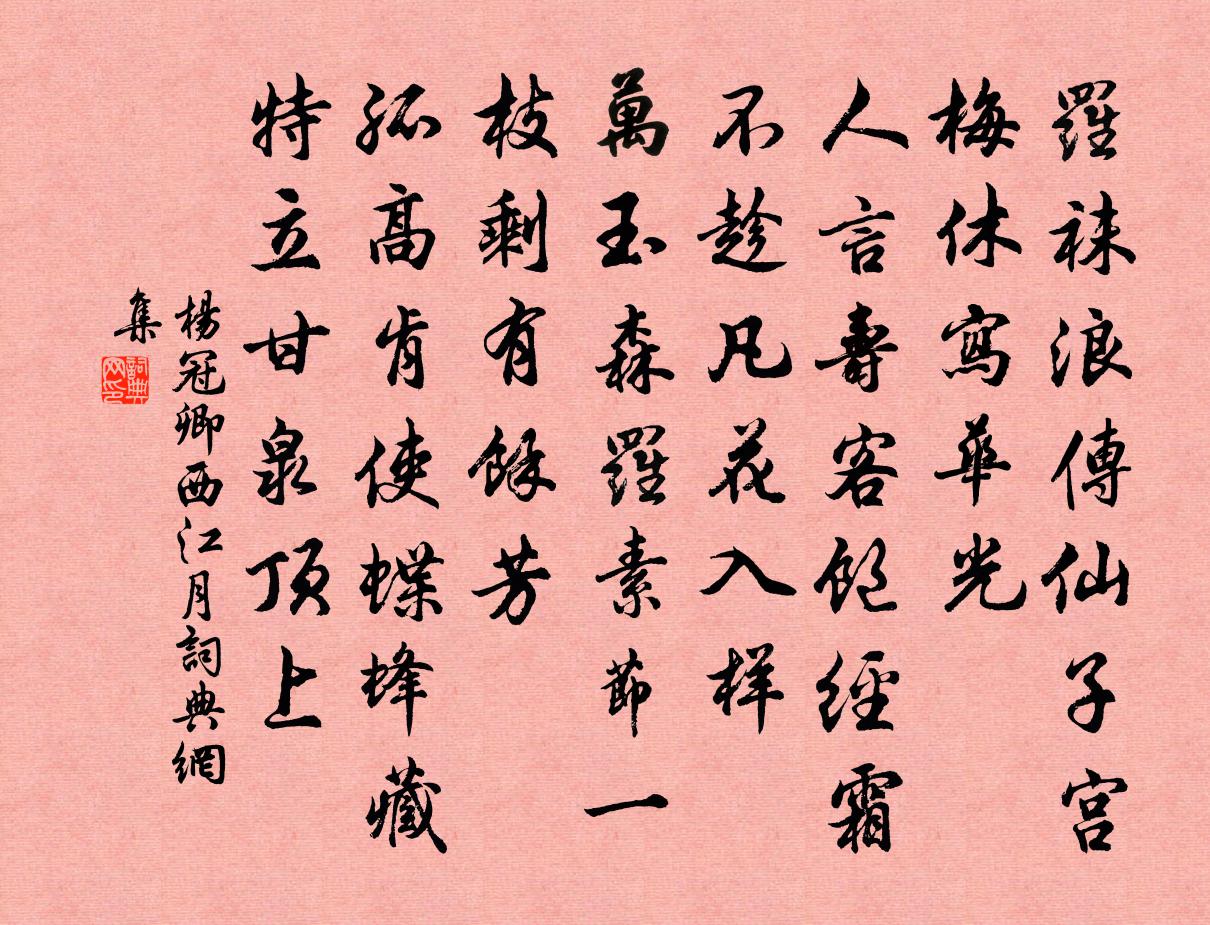 羅袜浪傳仙子宮
梅休寫華光
人言壽客飽經霜
不趁凡花入样
萬玉森羅素節一
枝剩有餘芳
孤高肯使蝶蜂藏
特立甘泉頂上
楊冠卿西江月詞典網
集
詞典网印